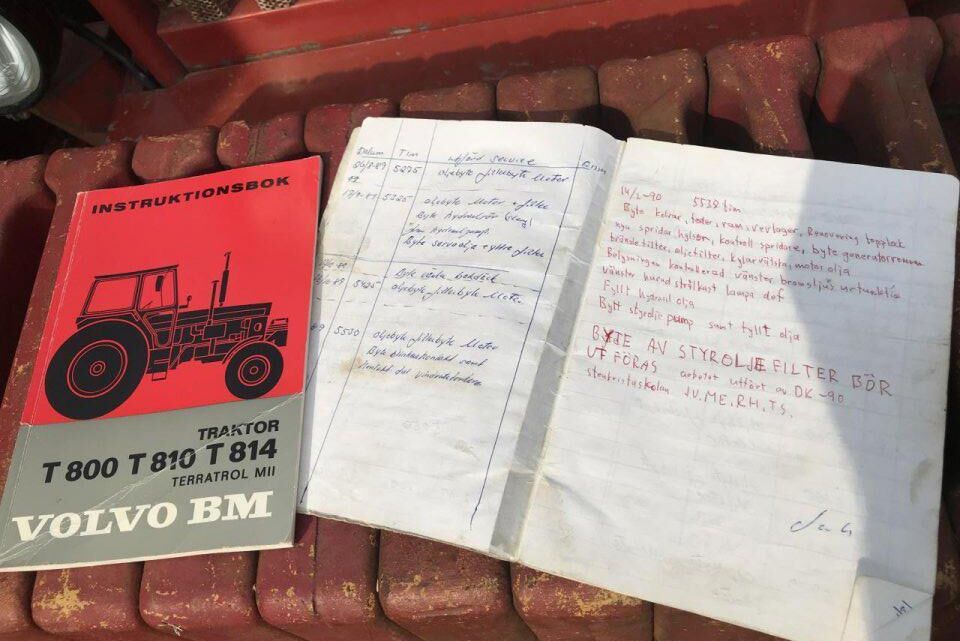 INSTRUKTIONSBOK
TRAKTOR
T 800 T 810 T 814
TERRATROL MII
VOLVO BM
Datum Tim utförd service
5275 oljebyte filterbyte Motor
oljebyte Motor + filter
Byte hydraulrör
Byte servoolja + yttre filter
Byte
5425 oljebyte filterbyte Motor
5530 oljebyte filterbyte Motor
Byte
14/2-90 5538 tim
Byte kolvar, foder, ram, vevlager, Renovering topplock
nya spridar hylsor, kontroll spridare, byte generatorremmar
bränslefilter, oljefilter, kylarvätska, motorolja
Belysningen kontrollerad vänster bromsljus ur funktion
vänster
Fyllt hydraul olja
Bytt styrolje pump samt fyllt olja
BYTE AV STYROLJE FILTER BÖR
UTFÖRAS arbetet utfört av DK-90
JU, ME, RH, TS.